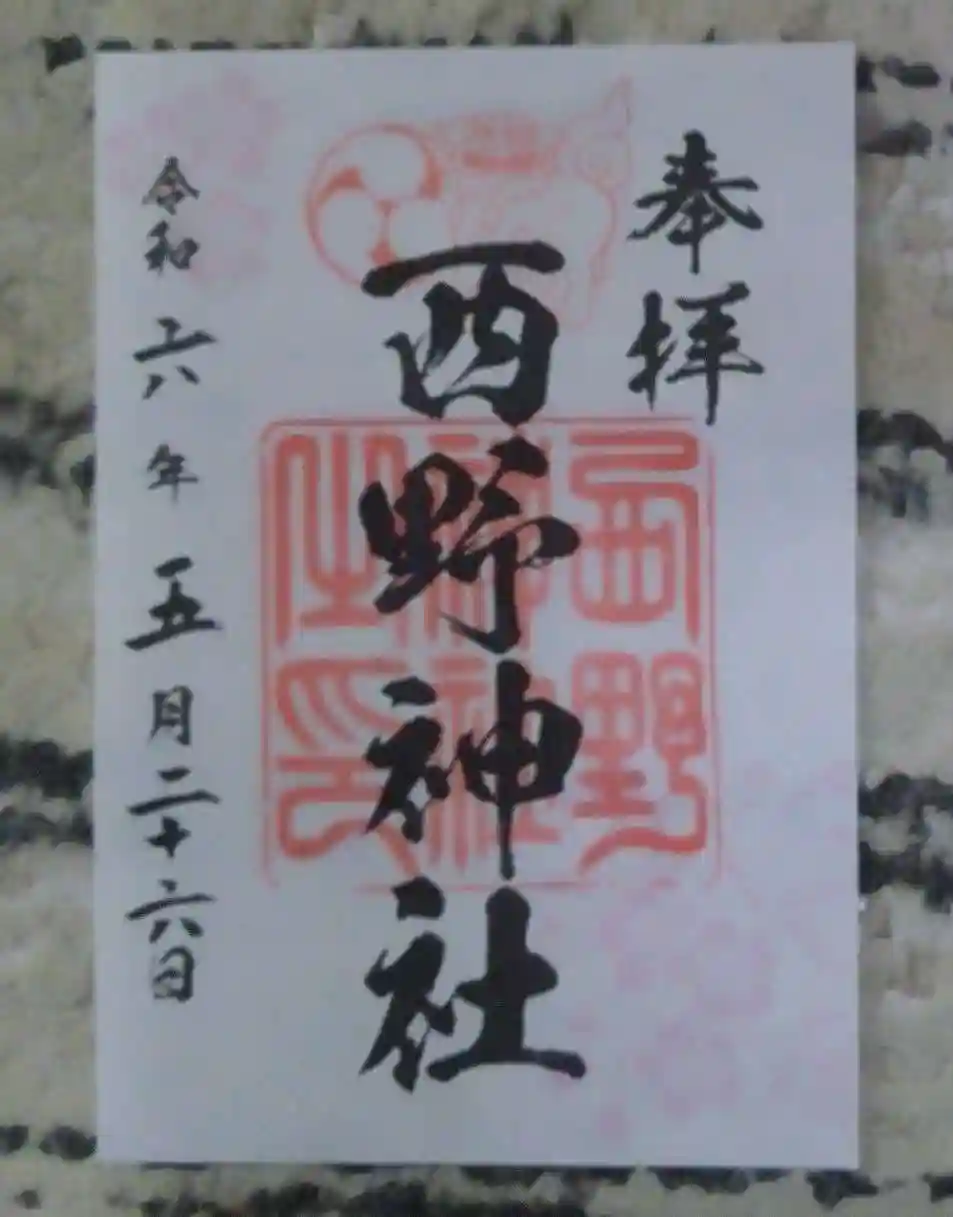 奉拝
西野神社
西野神社之印
令和六年五月二十六日